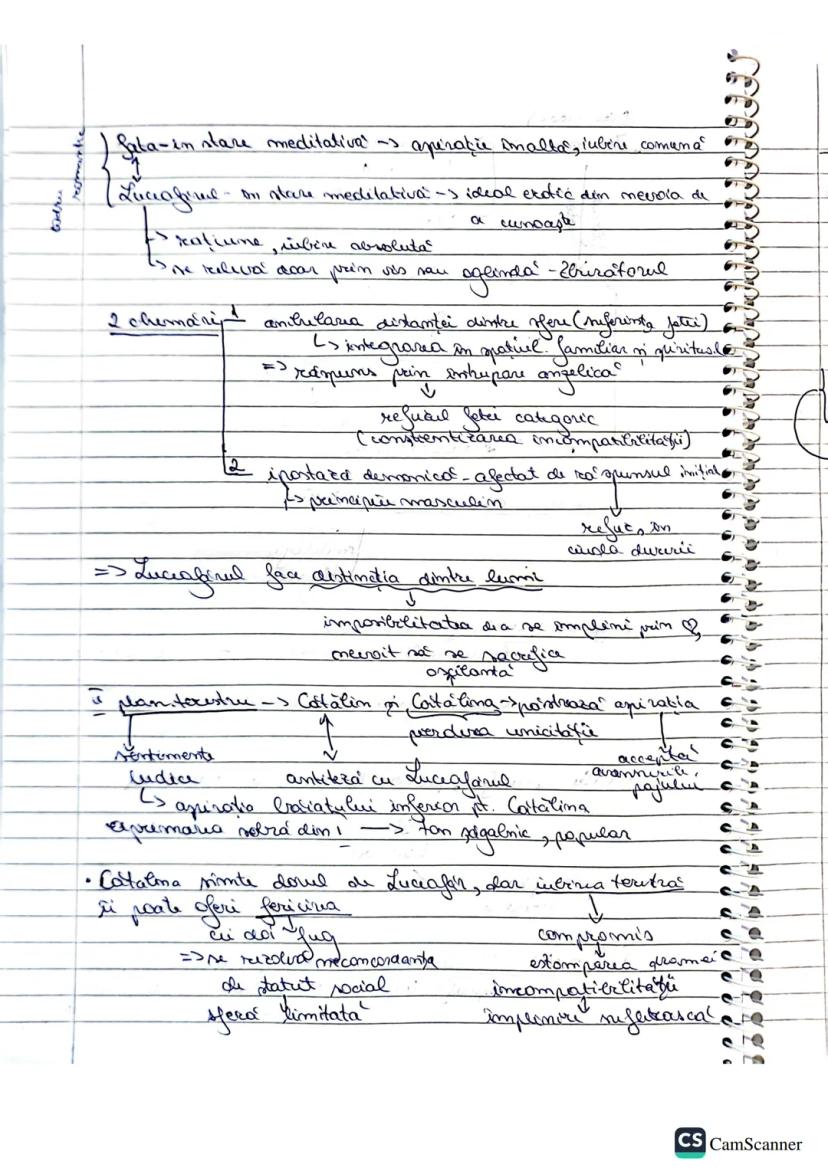 cadru romantic
Fata - în stare meditativă -> aspirație înaltă, iubire comună
Luceafărul - în stare meditativă -> ideal erotic din nevoia de
a cunoaște
-> rațiune, iubire absolută
-> se relevă doar prin vis sau oglindă - Zburătorul
2 chemări 1 anularea distanței dintre sfere (suferința fetei)
-> integrarea în spațiul familiar și spiritual
=> răspuns prin întrupare angelică
refuzul fetei categoric
(conștientizarea incompatibilității)
2 ipostază demonică - afectat de răspunsul inițial
-> principiu masculin
refuz, în
ciuda durerii
=> Luceafărul face distincția dintre lumi
imposibilitatea de a se împlini prin ♡,
nevoit să se sacrifice
oscilantă
II plan terestru -> Cătălin și Cătălina -> păstrează aspirația
pierderea unicității
sentimente acceptă
ludice antiteză cu Luceafărul avansurile
pajului
-> aspirația băiatului inferior pt. Cătălina
exprimarea sobră din I -> ton șăgalnic, popular
• Cătălina simte dorul de Luceafăr, dar iubirea terestră
îi poate oferi fericirea
cei doi fug compromis
=> se rezolvă neconcordanța estomparea dramei
de statut social incompatibilității
sferă limitată împlinire sufletească
CS CamScanner